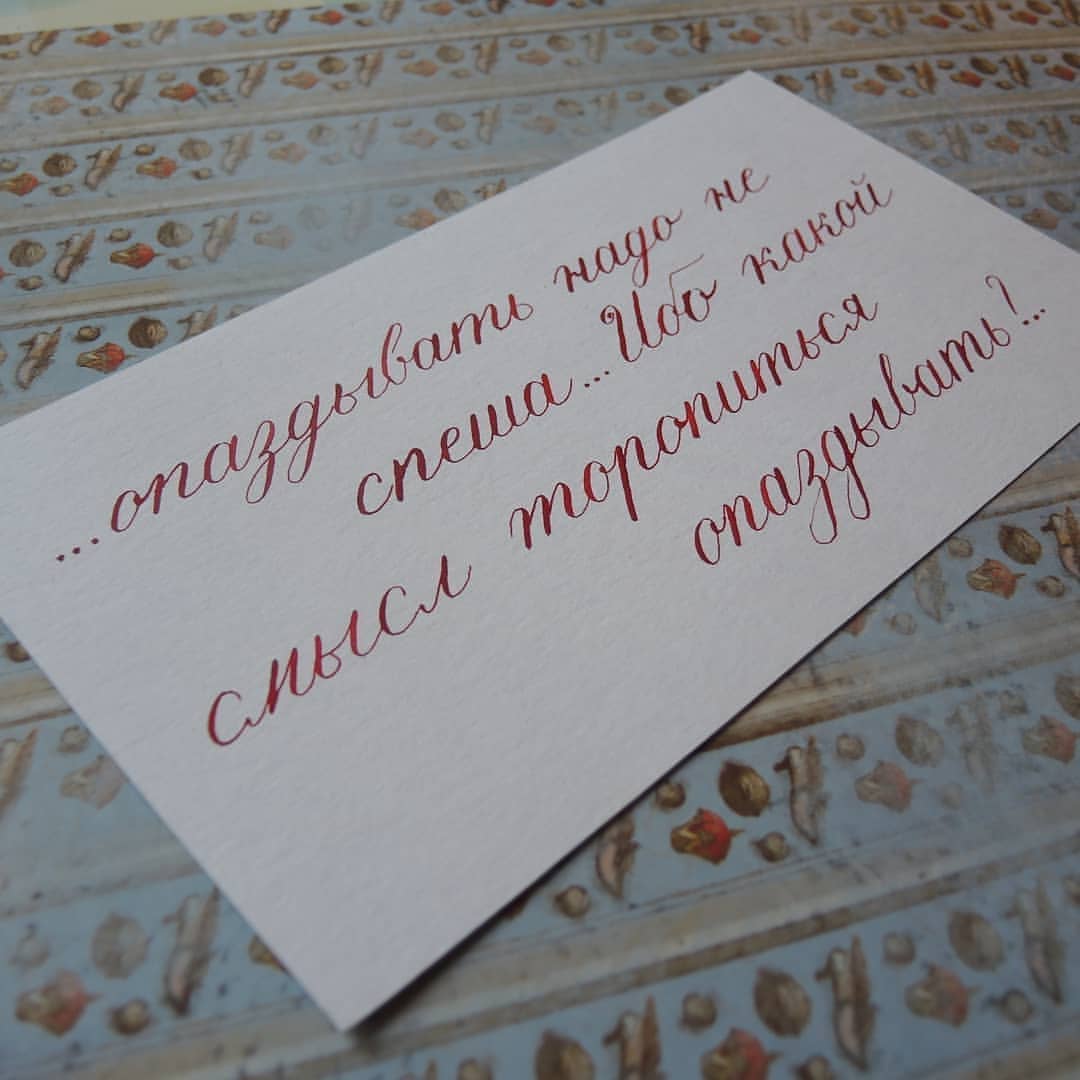 ...опаздывать надо не
спеша...Ибо какой
смысл торопиться
опаздывать!..